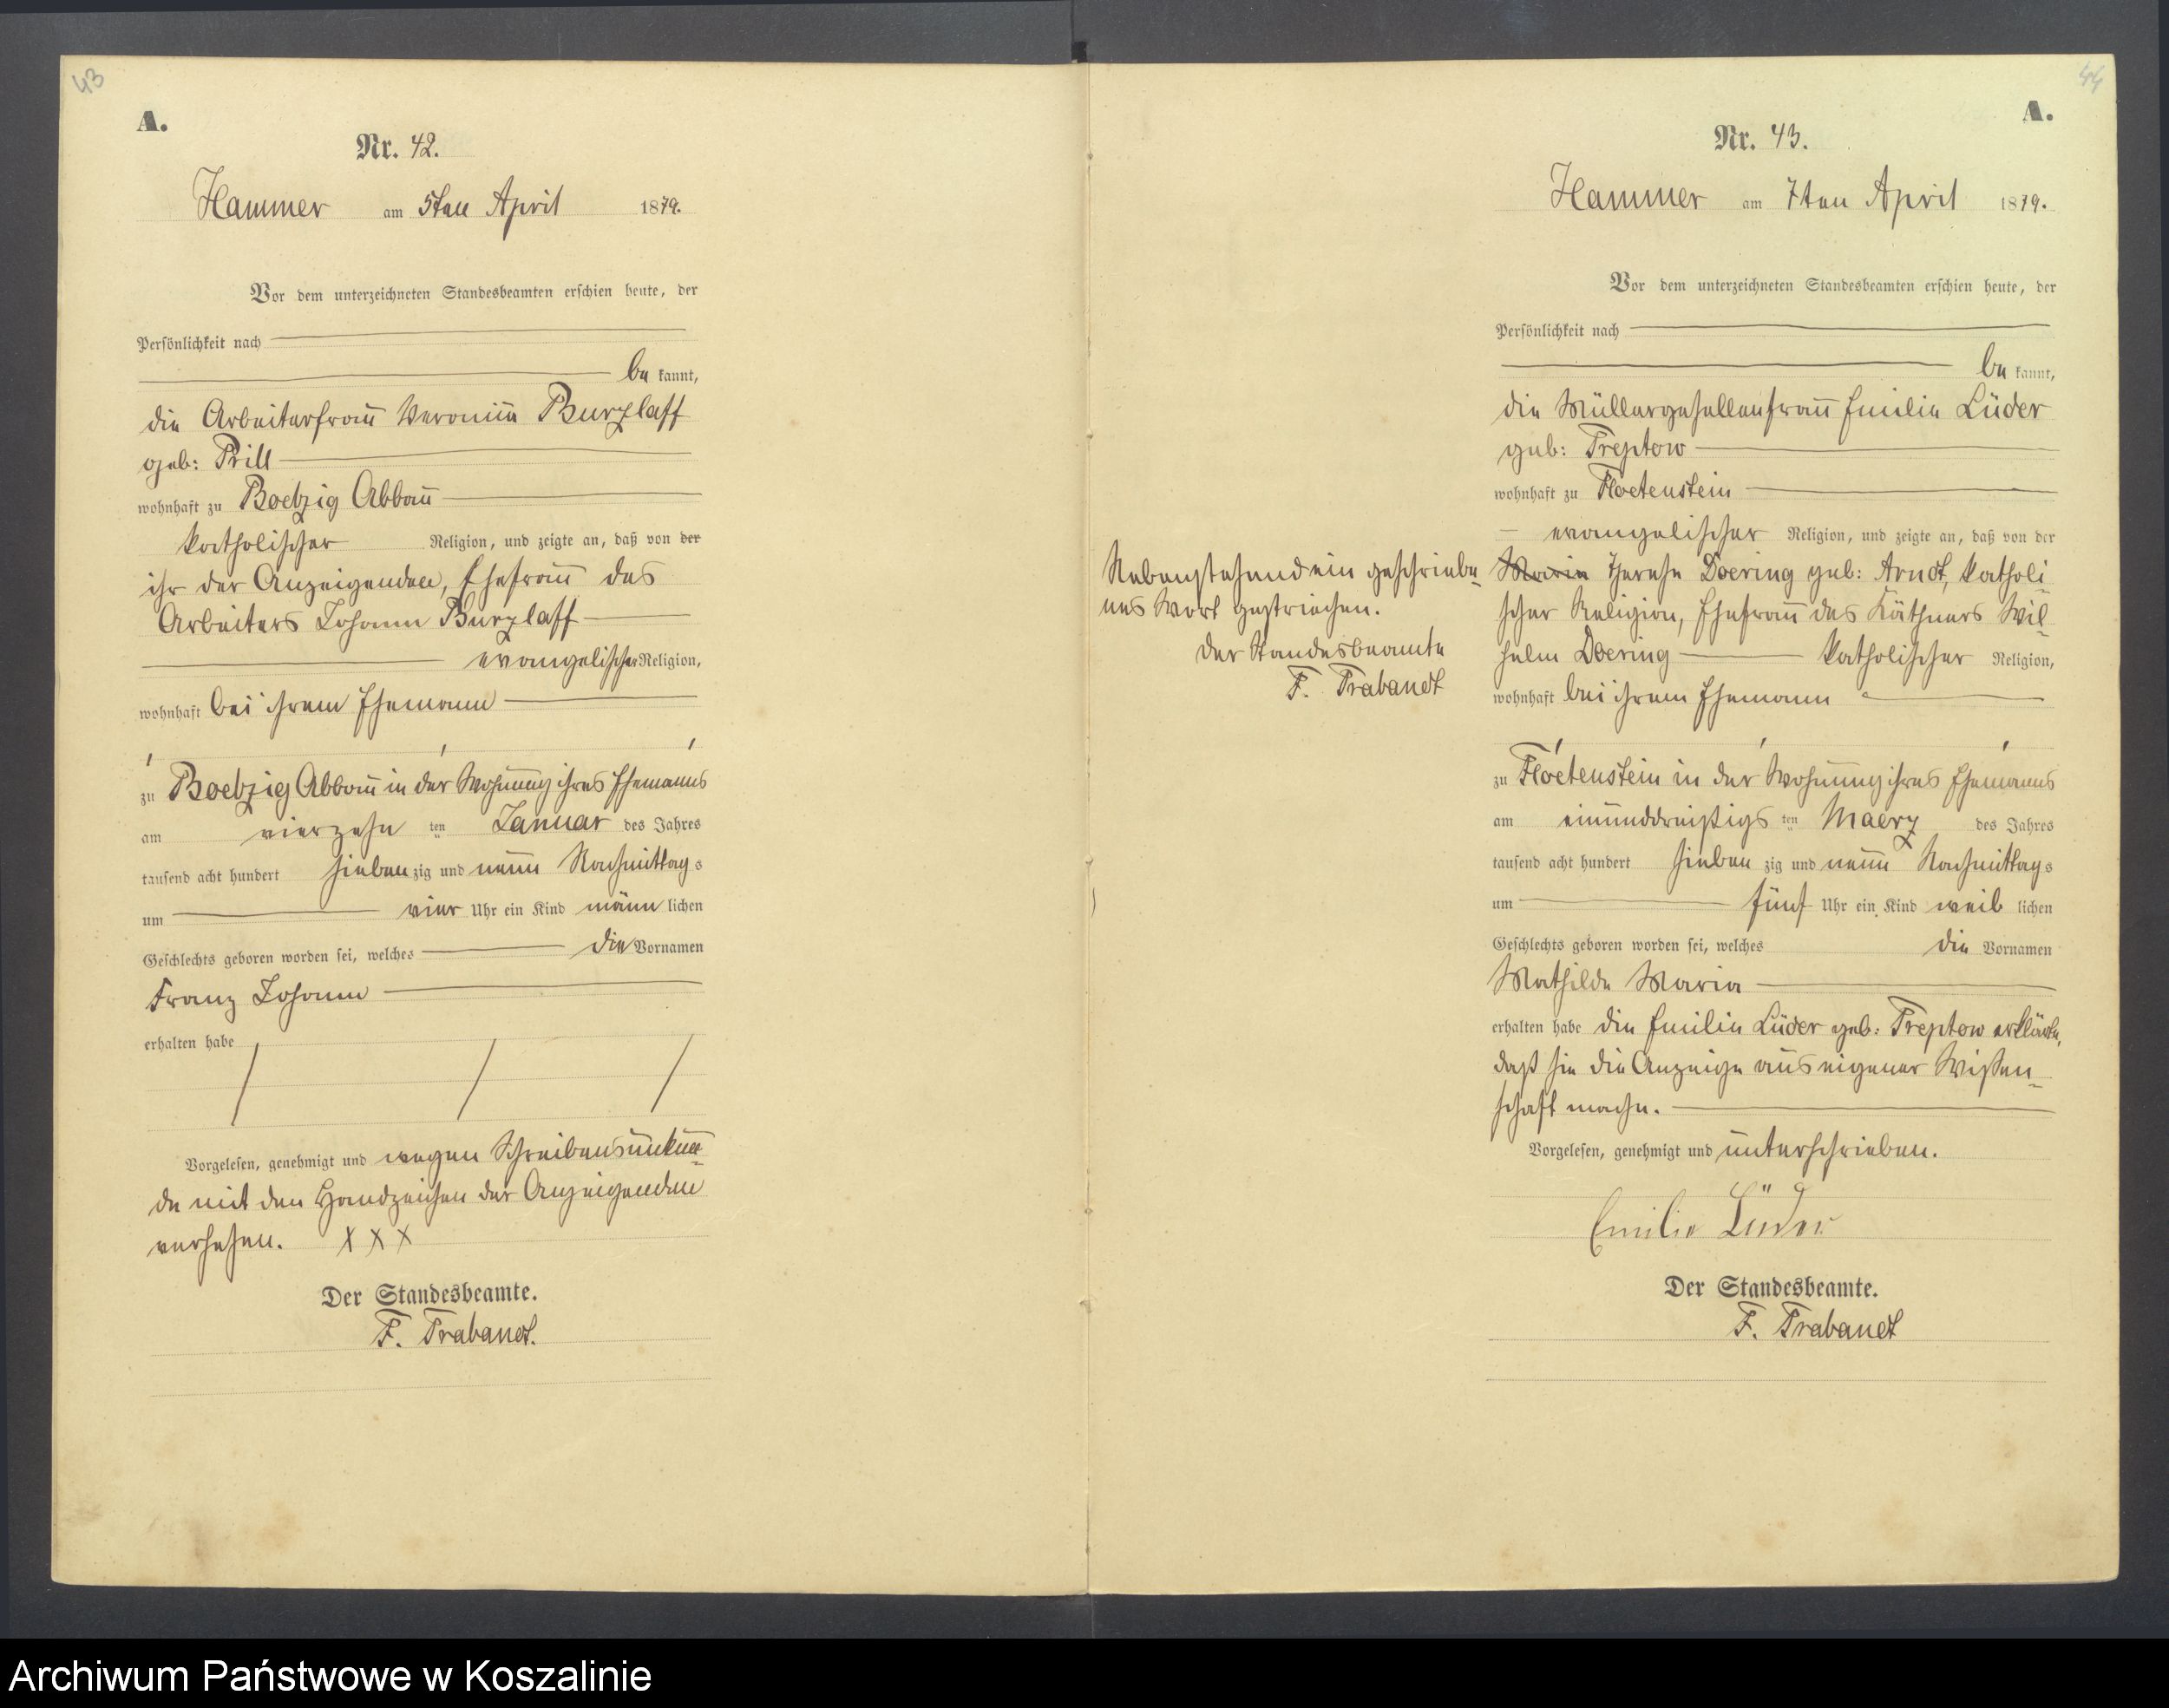 43
A.
Nr. 42.
Hammer am 5ten April 1879.
Vor dem unterzeichneten Standesbeamten erschien heute, der
Persönlichkeit nach
be kannt,
die Arbeiterfrau Burzlaff
geb: Prill
wohnhaft zu Boetzig Abbau
katholischer Religion, und zeigte an, daß von der
ihr der Anzeigenden, Ehefrau des
Arbeiters Johann Burzlaff
evangelischer Religion,
wohnhaft bei ihrem Ehemann
zu Boetzig Abbau in der Wohnung ihres Ehemanns
am vierzehn ten Januar des Jahres
tausend acht hundert sieben zig und neun Nachmittag s
um vier Uhr ein Kind männ lichen
Geschlechts geboren worden sei, welches die Vornamen
Franz Johann
erhalten habe
Vorgelesen, genehmigt und wegen Schreibensunkun-
de mit den Handzeichen der Anzeigenden
versehen. X X X
Der Standesbeamte.
F. Trabandt.
44
A.
Nr. 43.
Hammer am 7ten April 1879.
Vor dem unterzeichneten Standesbeamten erschien heute, der
Persönlichkeit nach
be kannt,
die Müllergesellenfrau Emilie Lüder
geb: Treptow
wohnhaft zu Floetenstein
evangelischer Religion, und zeigte an, daß von der
Marie Therese Doering geb: Arndt, katholi-
scher Religion, Ehefrau des Käthners Wil-
helm Doering katholischer Religion,
wohnhaft bei ihrem Ehemann
zu Floetenstein in der Wohnung ihres Ehemanns
am einunddreißigs ten Maerz des Jahres
tausend acht hundert sieben zig und neun Nachmittag s
um fünf Uhr ein Kind weib lichen
Geschlechts geboren worden sei, welches die Vornamen
Mathilde Maria
erhalten habe die Emilie Lüder geb: Treptow erklärte,
daß sie die Anzeige aus eigener Wißen-
schaft mache.
Vorgelesen, genehmigt und unterschrieben.
Emilie Lüder
Der Standesbeamte.
F. Trabandt
Nebenstehend ein geschriebe-
nes Wort gestrichen.
Der Standesbeamte
F. Trabandt
Archiwum Państwowe w Koszalinie